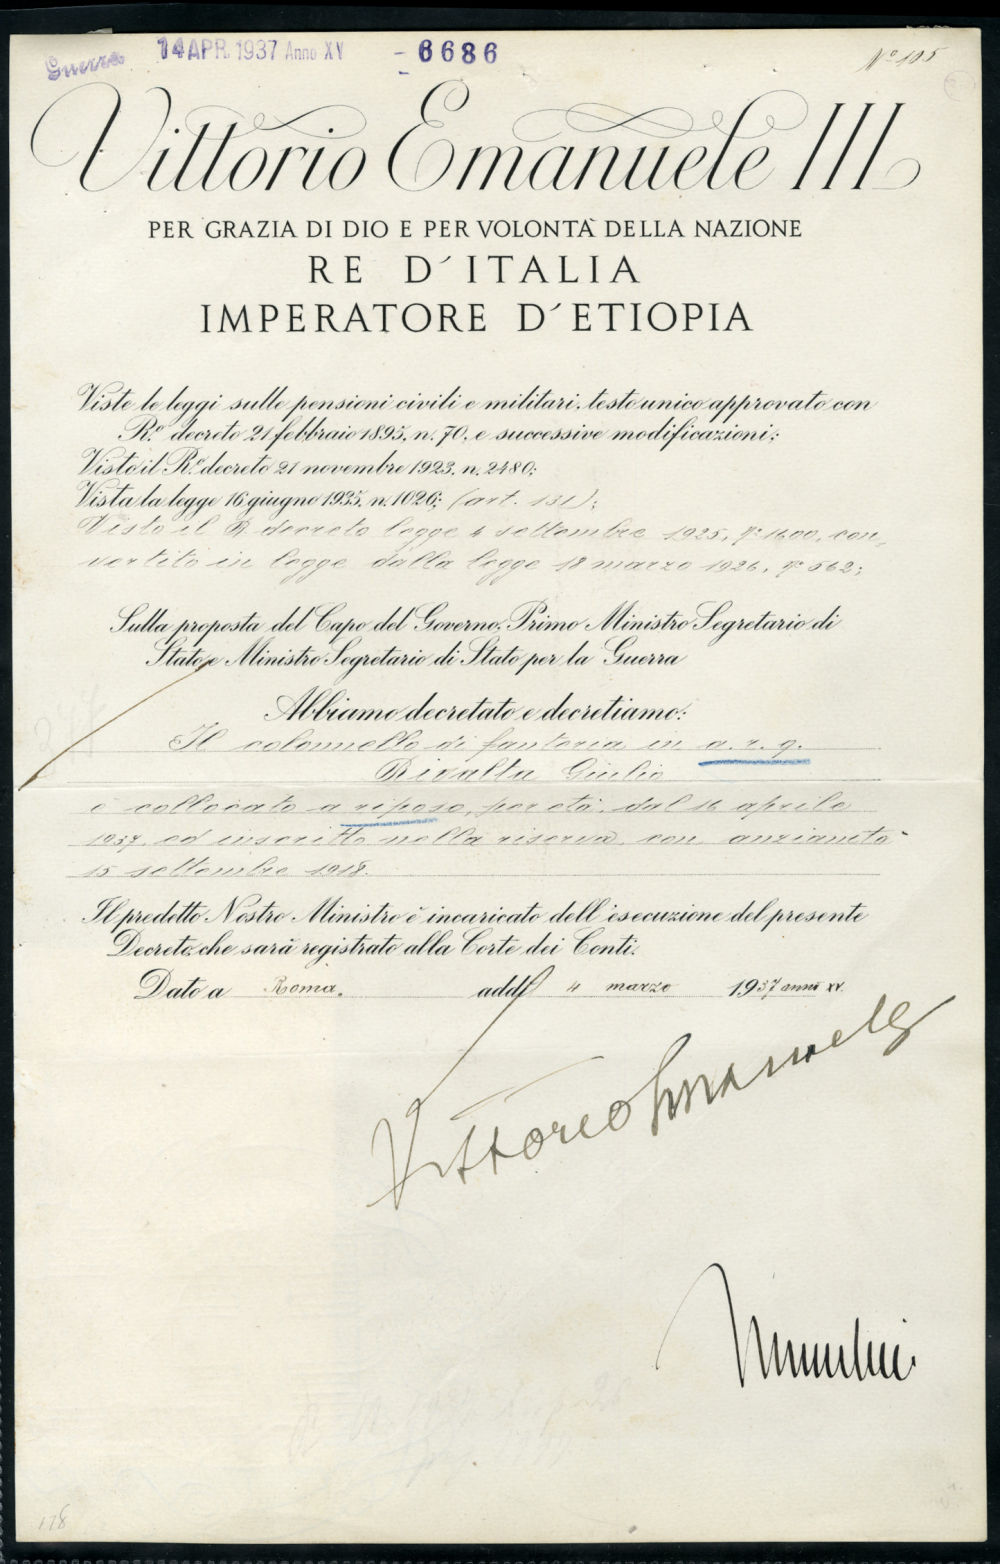 Guerra 14 APR. 1937 Anno XV - 6686 Nº 105
Vittorio Emanuele III
PER GRAZIA DI DIO E PER VOLONTÀ DELLA NAZIONE
RE D'ITALIA
IMPERATORE D'ETIOPIA
Viste le leggi sulle pensioni civili e militari, testo unico approvato con
R.º decreto 21 febbraio 1895, n. 70, e successive modificazioni;
Visto il R.º decreto 21 novembre 1923, n. 2480;
Vista la legge 16 giugno 1935, n. 1026; (art. 131);
Visto il R. decreto legge 4 settembre 1925, nº 1600, con-
vertito in legge dalla legge 18 marzo 1926, nº 562;
Sulla proposta del Capo del Governo, Primo Ministro Segretario di
Stato e Ministro Segretario di Stato per la Guerra
Abbiamo decretato e decretiamo:
Il colonnello di fanteria in a. r. q.
Rivalta Giulio
è collocato a riposo, per età, dal 16 aprile
1937, ed inscritto nella riserva, con anzianità
15 settembre 1918.
Il predetto Nostro Ministro è incaricato dell'esecuzione del presente
Decreto, che sarà registrato alla Corte dei Conti.
Dato a Roma, addì 4 marzo 1937 anno XV.
Vittorio Emanuele
Mussolini
178